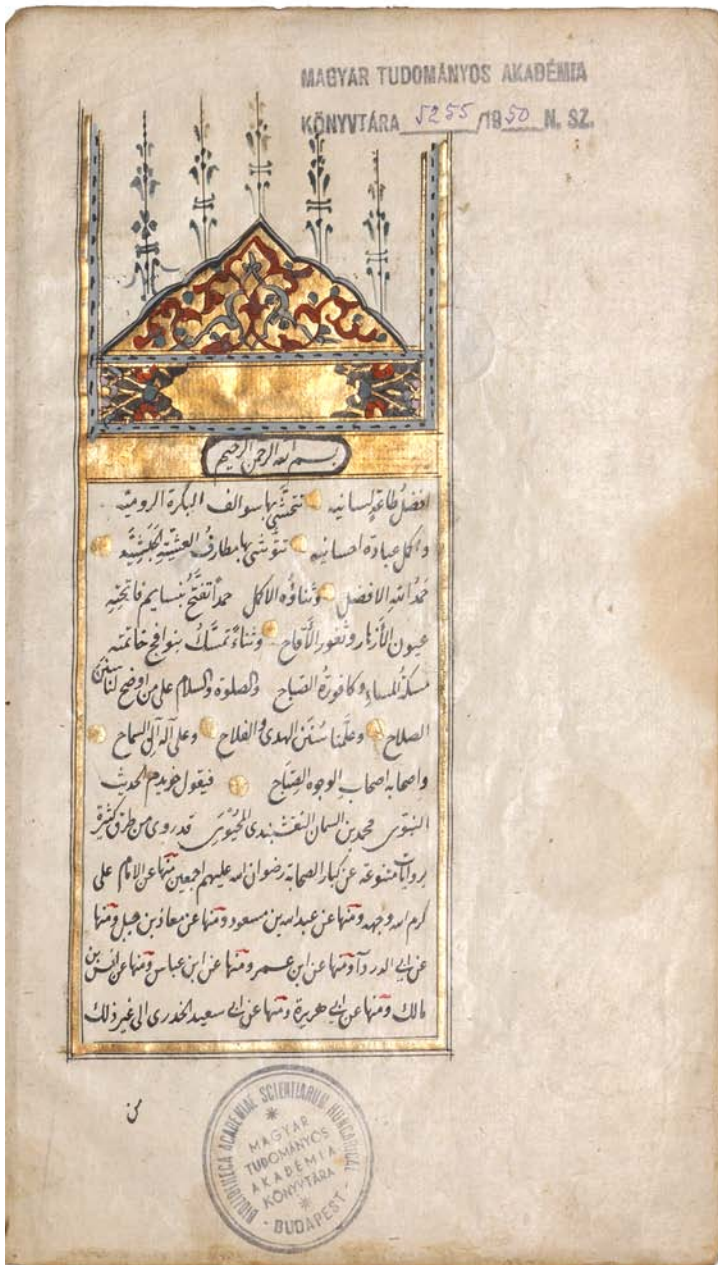 MAGYAR TUDOMÁNYOS AKADÉMIA
KÖNYVTÁRA 5255 /1950 N. SZ.
بسم الله الرحمن الرحيم
افضل طاعة لسانيه تتحشى بها سوالف البكرة الروميه
واكمل عبادة احسانيه تتوشى بها مطارف العشية الحبشيه
حمد الله الافضل وثناؤه الاكمل حمدا تفتح بنسايم فاتحته
عيون الأزهار وثغور الأقاح وثناء تمسك بنوافج خاتمته
مسكة المساء وكافورة الصباح والصلوة والسلام على من اوضح لنا سنن
الصلاح وعلمنا سنن الهدى والفلاح وعلى آله آل السماح
واصحابه اصحاب الوجوه الصباح فيقول خويدم الحديث
النبوى محمد بن السمان النقشبندى قدروى من طرق كثيرة
بروايات متنوعة عن كبار الصحابة رضوان الله عليهم اجمعين منها عن الامام على
كرم الله وجهه ومنها عن عبد الله بن مسعود ومنها عن معاذ بن جبل ومنها
عن ابى الدردآء ومنها عن ابن عمر ومنها عن ابن عباس ومنها عن انس بن
مالك ومنها عن ابى هريرة ومنها عن ابى سعيد الخدرى الى غير ذلك
من
BIBLIOTHECA ACADEMIAE SCIENTIARUM HUNGARICAE
MAGYAR
TUDOMÁNYOS
AKADÉMIA
KÖNYVTÁRA
- BUDAPEST -